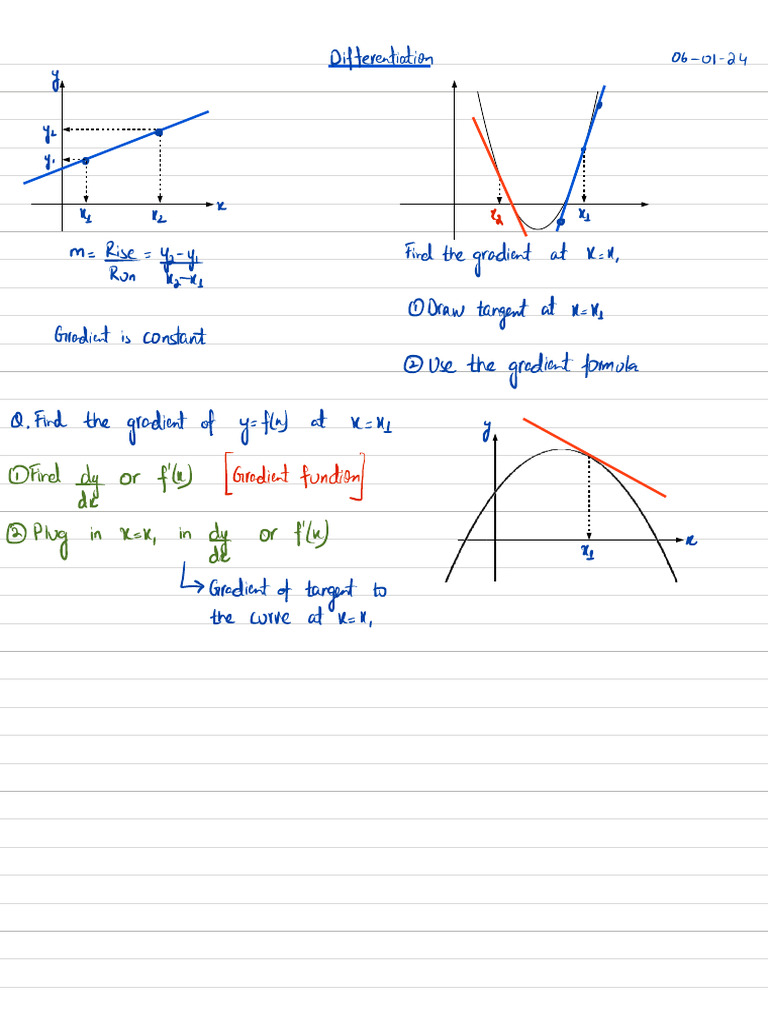 Differentiation
06-01-24
y
y₂
y₁
x₁
x₂
x
m = Rise/Run = y₂-y₁/x₂-x₁
Gradient is constant
x₂
x₁
Find the gradient at x=x₁
① Draw tangent at x=x₁
② Use the gradient formula
Q. Find the gradient of y=f(x) at x=x₁
① Find dy/dx or f'(x) [Gradient function]
② Plug in x=x₁ in dy/dx or f'(x)
↳ Gradient of tangent to
the curve at x=x₁
y
x
x₁